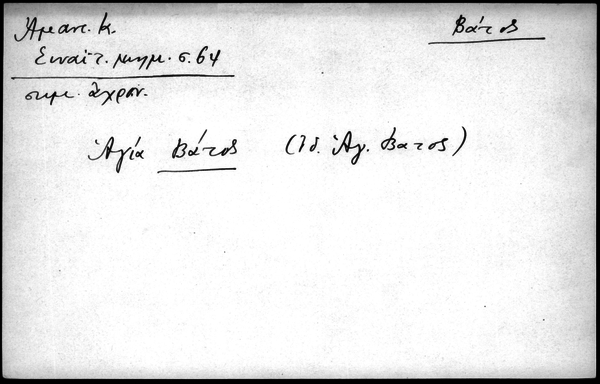 Ἄμαντ. Κ.
Βάτος
Σιναϊτ. μνημ. σ. 64
σημ. ἄχρον.
Ἁγία Βάτος (ἰδ. Ἁγ. Βάτος)